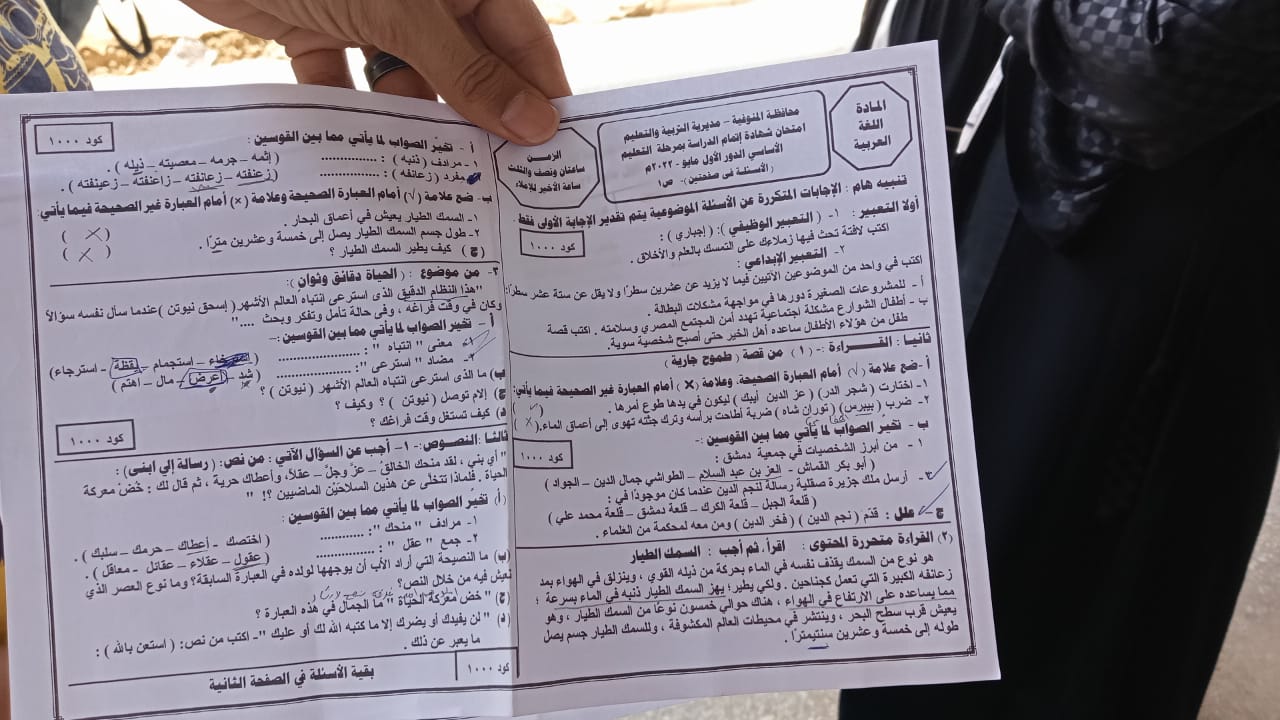 المادة
اللغة
العربية
محافظة المنوفية – مديرية التربية والتعليم
امتحان شهادة إتمام الدراسة بمرحلة التعليم
الأساسي الدور الأول مايو - ٢٠٢٢م
( الأسئلة فى صفحتين )- ص١
الزمـــن
ساعتان ونصف والثلث
ساعة الأخير للإملاء
تنبيه هام : الإجابات المتكررة عن الأسئلة الموضوعية يتم تقدير الإجابة الأولى فقط
أولا التعبير : ١- ( التعبير الوظيفي ): ( إجباري ) :
كود ١٠٠٠
اكتب لافتة تحث فيها زملاءك على التمسك بالعلم والأخلاق .
٢- التعبير الإبداعي :
اكتب في واحد من الموضوعين الآتيين فيما لا يزيد عن عشرين سطرًا ولا يقل عن ستة عشر سطرًا:
أ - للمشروعات الصغيرة دورها في مواجهة مشكلات البطالة .
ب - أطفال الشوارع مشكلة اجتماعية تهدد أمن المجتمع المصري وسلامته . اكتب قصة
طفل من هؤلاء الأطفال ساعده أهل الخير حتى أصبح شخصية سوية.
ثانيـا : القـــراءة :- ( ١ ) من قصة ( طموح جارية )
أ - ضع علامة (√) أمام العبارة الصحيحة، وعلامة (×) أمام العبارة غير الصحيحة فيما يأتي:
١- اختارت ( شجر الدر) ( عز الدين أيبك ) ليكون في يدها طوع أمرها . ( ✓ )
٢- ضرب ( بيبرس) ( توران شاه ) ضربة أطاحت برأسه وترك جثته تهوى إلى أعماق الماء.( × )
ب - تخيّر الصواب لما يأتي مما بين القوسين :-
كود ١٠٠٠
١ - من أبرز الشخصيات في جمعية دمشق :
( أبو بكر القماش - العز بن عبد السلام – الطواشي جمال الدين – الجواد )
٢- أرسل ملك جزيرة صقلية رسالة لنجم الدين عندما كان موجودًا في :
( قلعة الجبل – قلعة الكرك – قلعة دمشق – قلعة محمد علي )
ج - علل : قدّم ( نجم الدين ) ( فخر الدين ) ومن معه لمحكمة من العلماء .
(٢) القراءة متحررة المحتوى : اقرأ، ثم أجب : السمك الطيار
هو نوع من السمك يقذف نفسه في الماء بحركة من ذيله القوي ، وينزلق في الهواء بمد
زعانفه الكبيرة التي تعمل كجناحين . ولكي يطير؛ يهز السمك الطيار ذنبه في الماء بسرعة ؛
مما يساعده على الارتفاع في الهواء ، هناك حوالي خمسون نوعًا من السمك الطيار ، وهو
يعيش قرب سطح البحر ، وينتشر في محيطات العالم المكشوفة ، وللسمك الطيار جسم يصل
طوله إلى خمسة وعشرين سنتيمترًا .
كود ١٠٠٠
أ - تخيّر الصواب لما يأتي مما بين القوسين :
١ - مرادف ( ذنبه ) : ............... ( إثمه – جرمه – معصيته – ذيله ) .
مفرد ( زعانفه ) : ............... ( زعنفته – زعانفته – زاعنفته – زعينفته ) .
ب- ضع علامة (√) أمام العبارة الصحيحة وعلامة (×) أمام العبارة غير الصحيحة فيما يأتي:
١- السمك الطيار يعيش في أعماق البحار . ( × )
٢- طول جسم السمك الطيار يصل إلى خمسة وعشرين مترًا . ( × )
( ج ) كيف يطير السمك الطيار ؟
٣- من موضوع : ( الحياة دقائق وثوان ):
"هذا النظام الدقيق الذى استرعى انتباه العالم الأشهر ( إسحق نيوتن )عندما سأل نفسه سؤالاً
وكان في وقت فراغه ، وفى حالة تأمل وتفكر وبحث ...."
أ – تخيّر الصواب لما يأتي مما بين القوسين :-
١- معنى " انتباه " : ................. – استجمام – يقظة – استرجاء)
٢- مضاد " استرعى ": ................. ( شد – أعرض – مال – اهتم )
ب) ما الذى استرعى انتباه العالم الأشهر ( نيوتن ) ؟
ج) إلام توصل ( نيوتن ) ؟ وكيف ؟
د) كيف تستغل وقت فراغك ؟
كود ١٠٠٠
ثالثا :النصــوص:- ١- أجب عن السؤال الآتي : من نص: ( رسالة إلى ابني) :
" أي بني ، لقد منحك الخالق – عزّ وجلّ – عقلاً، وأعطاك حرية ، ثم قال لك : خُضْ معركة
الحياة . فلماذا تتخلّى عن هذين السلاحيْن الماضيين ؟! "
(أ) تخيّر الصواب لما يأتي مما بين القوسين :
١- مرادف " منحك ": ............ ( اختصك - أعطاك – حرمك – سلبك ) .
٢- جمع " عقل " : ............... ( عقول – عقلاء – عقائل – معاقل ) .
(ب) ما النصيحة التي أراد الأب أن يوجهها لولده في العبارة السابقة؟ وما نوع العصر الذي
نعيش فيه من خلال النص؟
(ج) " خض معركة الحياة " ما الجمال في هذه العبارة ؟
(د) " لن يفيدك أو يضرك إلا ما كتبه الله لك أو عليك "- اكتب من نص: ( استعن بالله ) :
ما يعبر عن ذلك .
كود ١٠٠٠
بقية الأسئلة في الصفحة الثانية